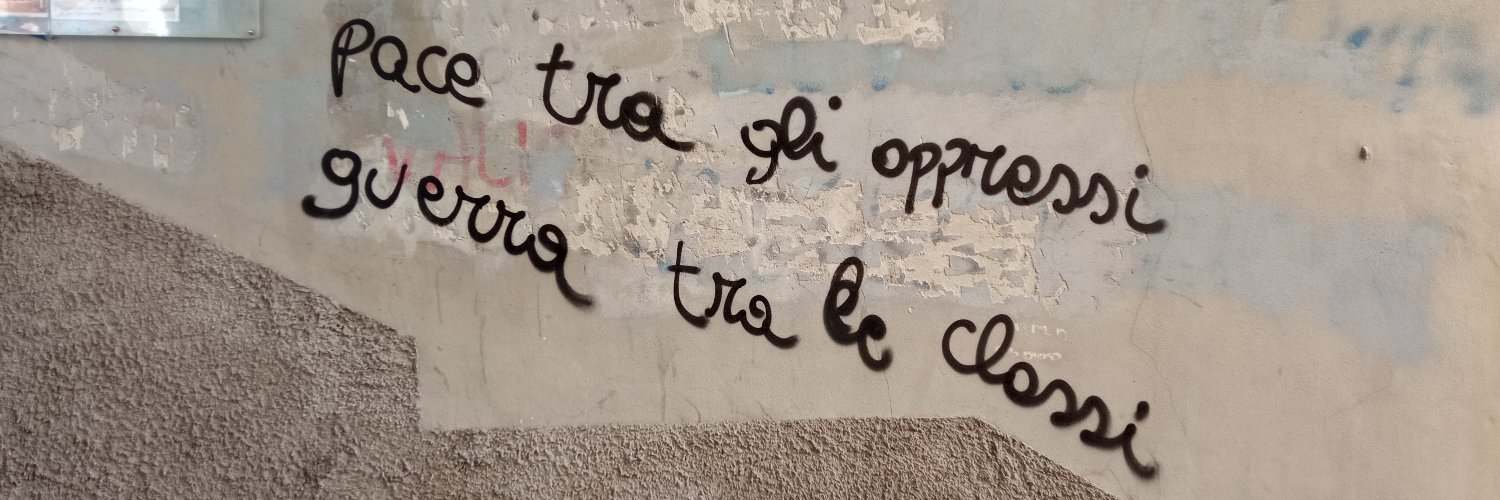 pace tra gli oppressi
guerra tra le classi